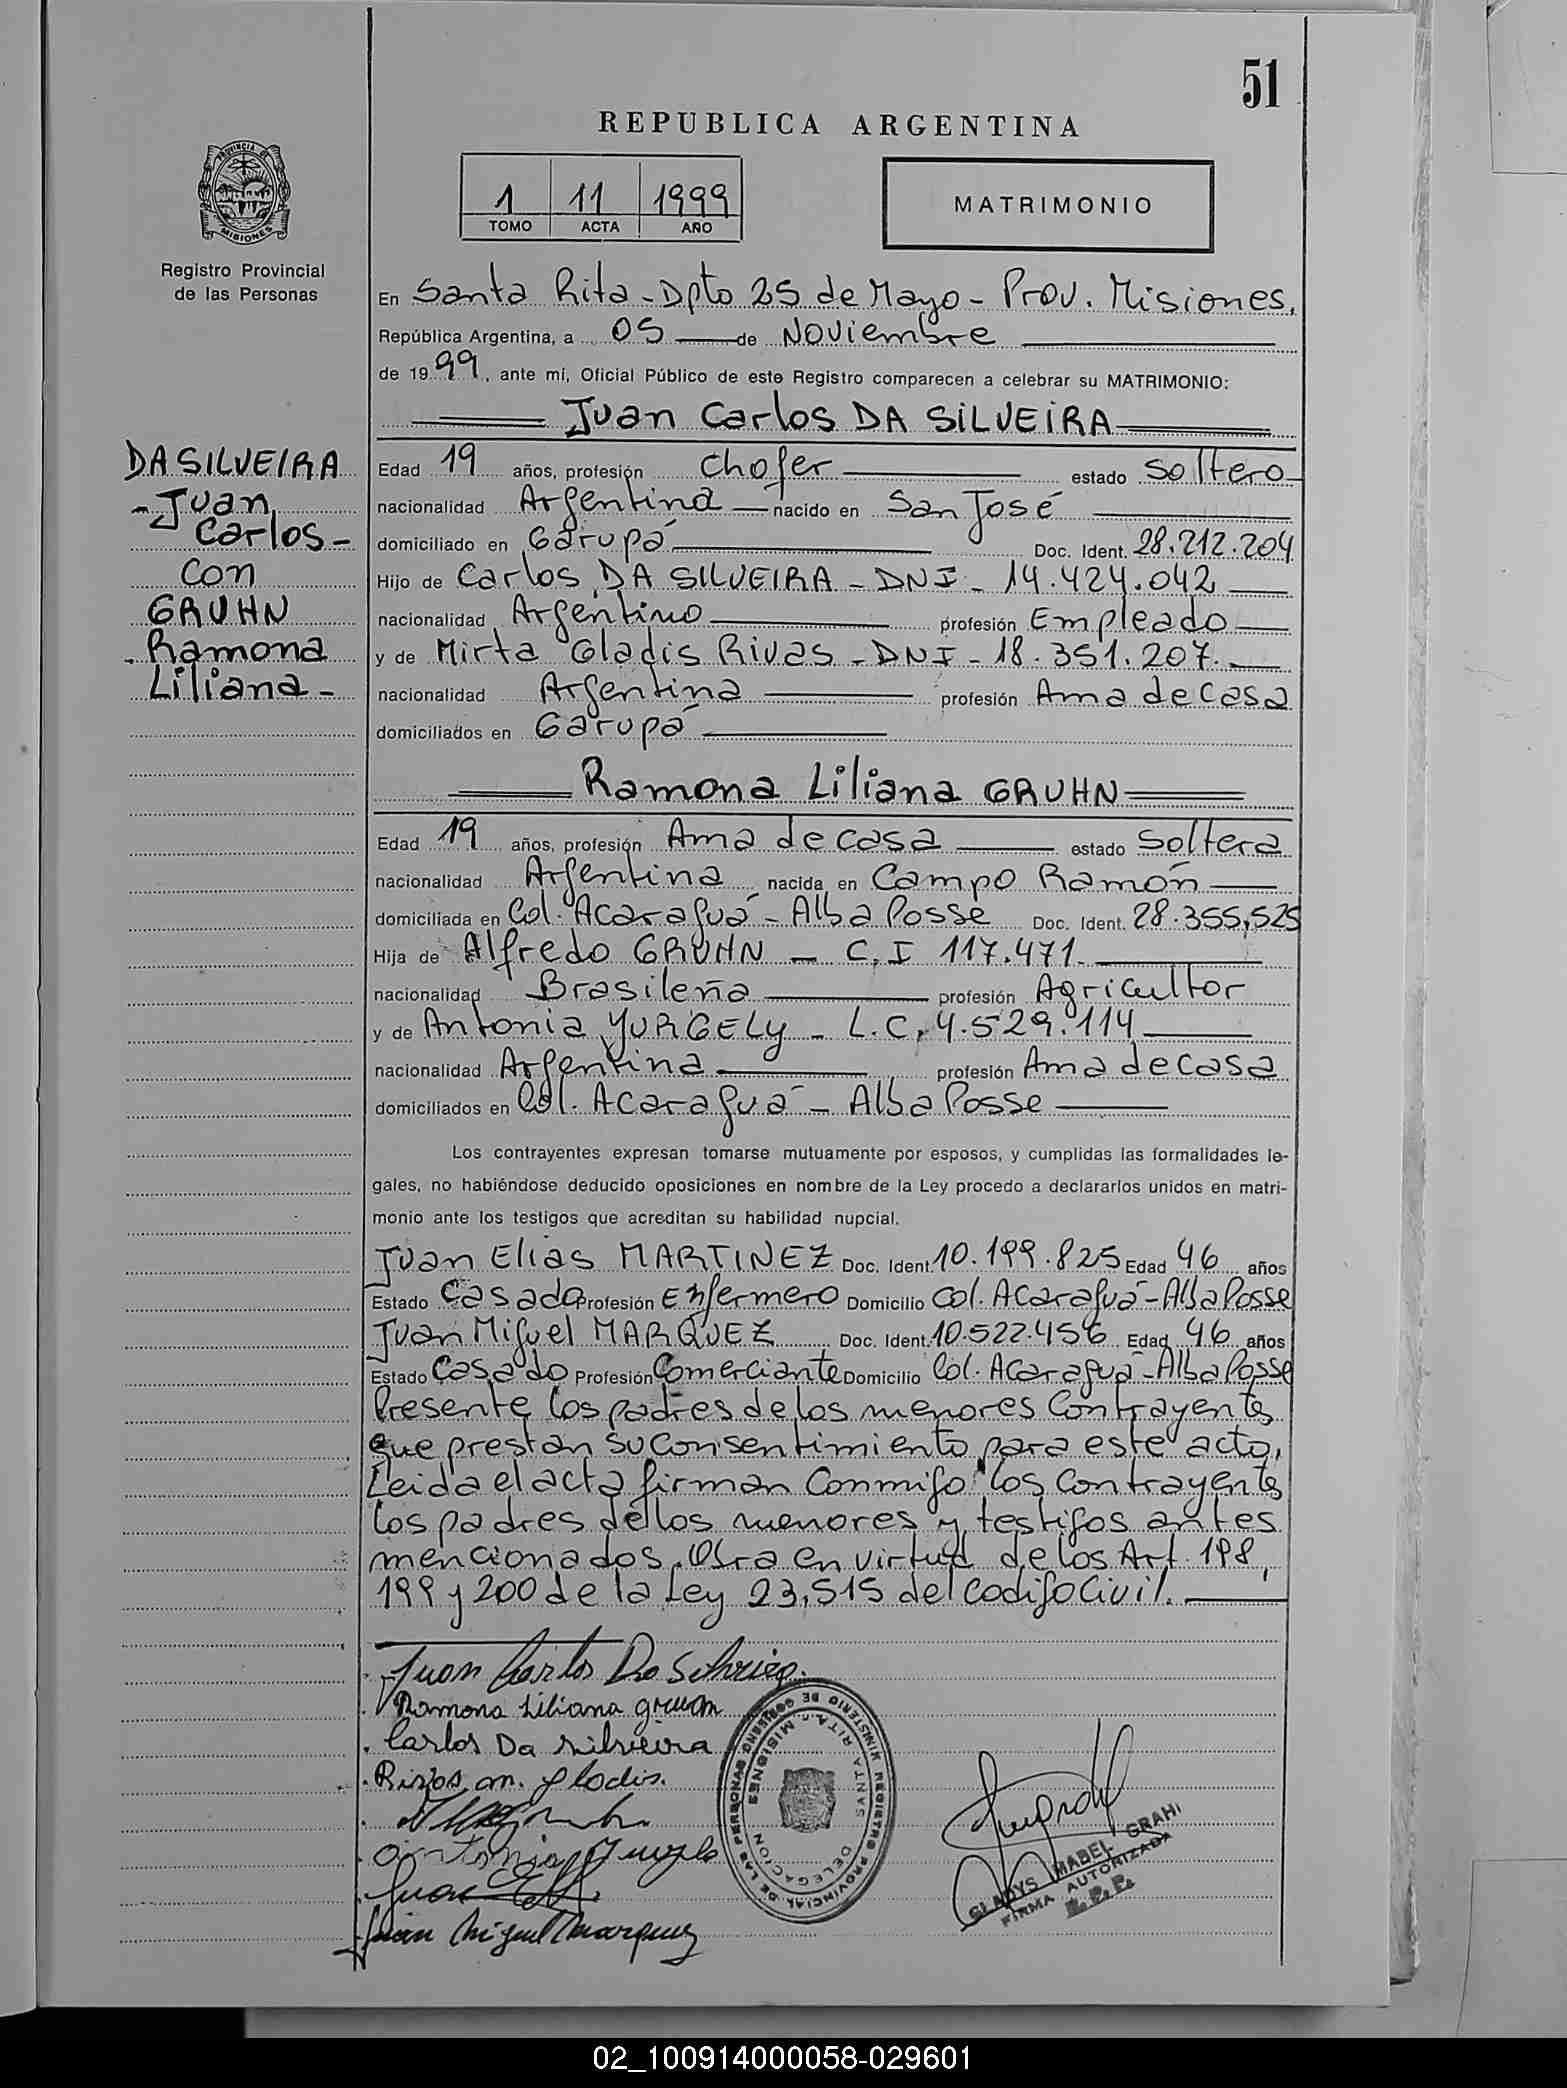 51
REPUBLICA ARGENTINA
1 11 1999
TOMO ACTA AÑO
MATRIMONIO
PROVINCIA DE
MISIONES
Registro Provincial
de las Personas
En Santa Rita - Dpto 25 de Mayo - Prov. Misiones.
República Argentina, a 05 de Noviembre
de 1999, ante mí, Oficial Público de este Registro comparecen a celebrar su MATRIMONIO:
Juan Carlos DA SILVEIRA
DA SILVEIRA
- Juan
Carlos -
con
GRUHN
Ramona
Liliana -
Edad 19 años, profesión chofer estado soltero
nacionalidad Argentina nacido en San José
domiciliado en Garupá Doc. Ident. 28.212.204
Hijo de Carlos DA SILVEIRA - DNI - 14.424.042
nacionalidad Argentino profesión Empleado
y de Mirta Gladis Rivas - DNI - 18.351.207.
nacionalidad Argentina profesión Ama de casa
domiciliados en Garupá
Ramona Liliana GRUHN
Edad 19 años, profesión Ama de casa estado soltera
nacionalidad Argentina nacida en Campo Ramón
domiciliada en Col. Acaraguá - Alba Posse Doc. Ident. 28.355,525
Hija de Alfredo GRUHN - C.I 117.471.
nacionalidad Brasileña profesión Agricultor
y de Antonia YURGELy - L.C. 4.529.114
nacionalidad Argentina profesión Ama de casa
domiciliados en Col. Acaraguá - Alba Posse
Los contrayentes expresan tomarse mutuamente por esposos, y cumplidas las formalidades le-
gales, no habiéndose deducido oposiciones en nombre de la Ley procedo a declararlos unidos en matri-
monio ante los testigos que acreditan su habilidad nupcial.
Juan Elias MARTINEZ Doc. Ident. 10.199.825 Edad 46 años
Estado Casado Profesión Enfermero Domicilio Col. Acaraguá - Alba Posse
Juan Miguel MARQUEZ Doc. Ident. 10.522.456 Edad 46 años
Estado Casado Profesión Comerciante Domicilio Col. Acaraguá - Alba Posse
Presente los padres de los menores Contrayentes
que prestan su consentimiento para este acto,
Leida el acta firman conmigo los contrayentes
los padres de los menores y testigos antes
mencionados. Obra en virtud de los Art. 198,
199 y 200 de la Ley 23,515 del codigo Civil.
Juan Carlos Da Silveira.
Ramona Liliana gruhn
Carlos Da Silveira
Rivas m. gladis.
Antonia Yurgele
Juan
Juan Miguel Marquez
MINISTERIO DE GOBIERNO REGISTRO PROVINCIAL DE LAS PERSONAS
DELEGACION SANTA RITA MISIONES
GLADYS MABEL GRAHI
FIRMA AUTORIZADA
R.P.P.
02_100914000058-029601